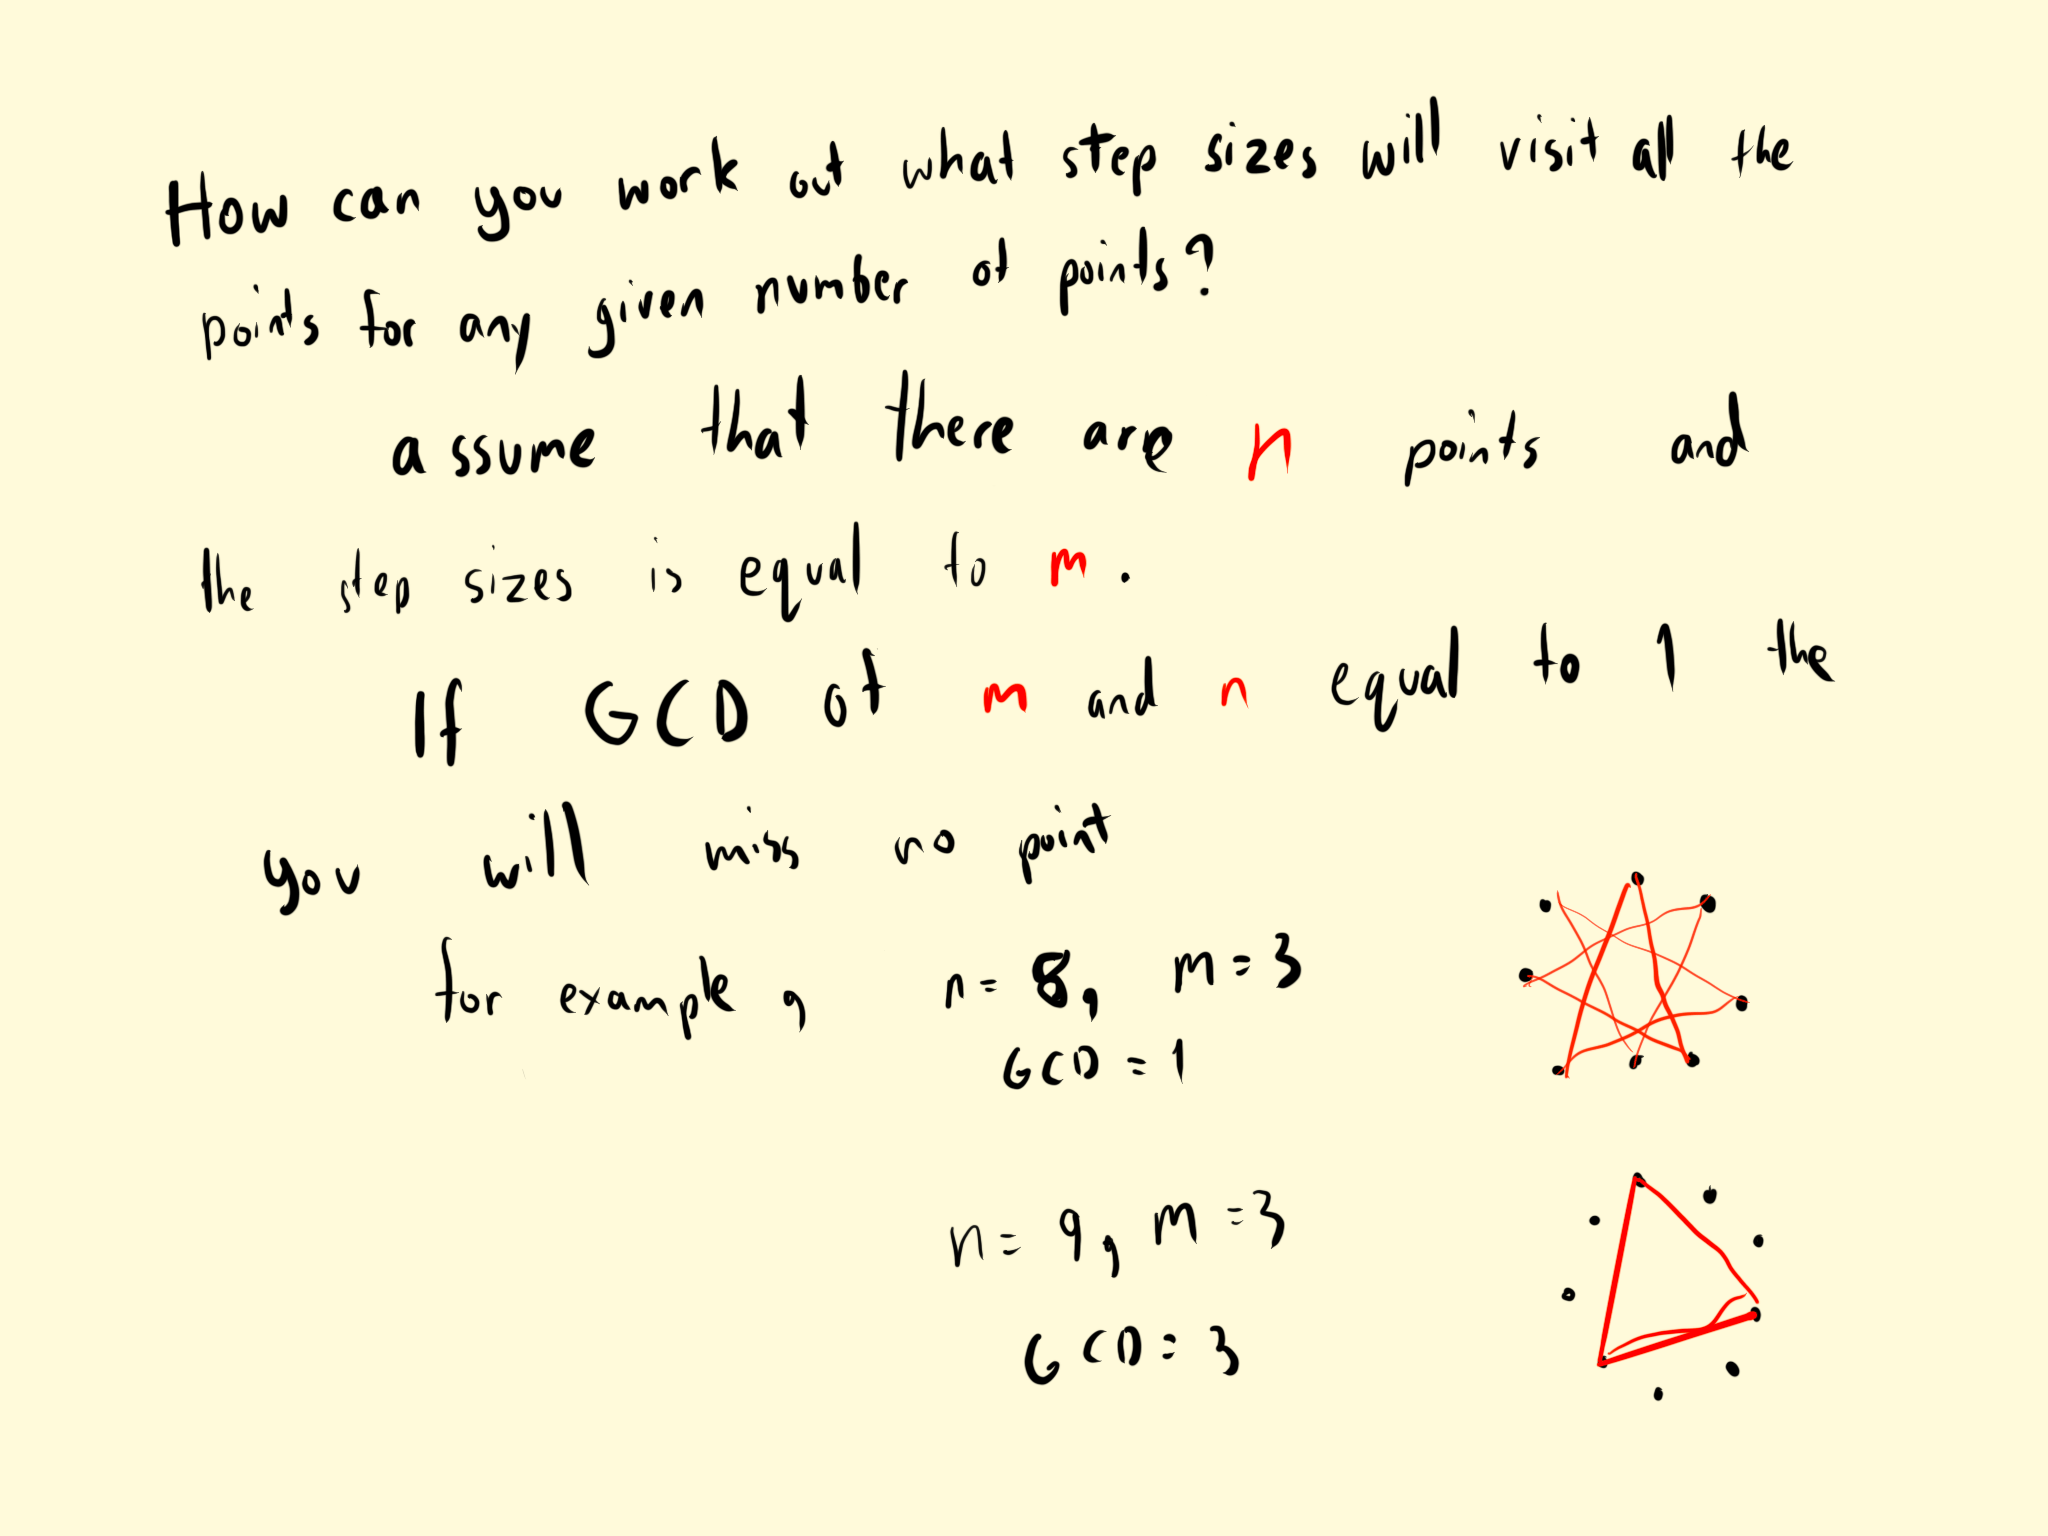 How can you work out what step sizes will visit all the
points for any given number of points?
assume that there are n points and
the step sizes is equal to m.
If GCD of m and n equal to 1 the
you will miss no point
for example, n= 8, m=3
GCD = 1
n= 9, m=3
GCD=3